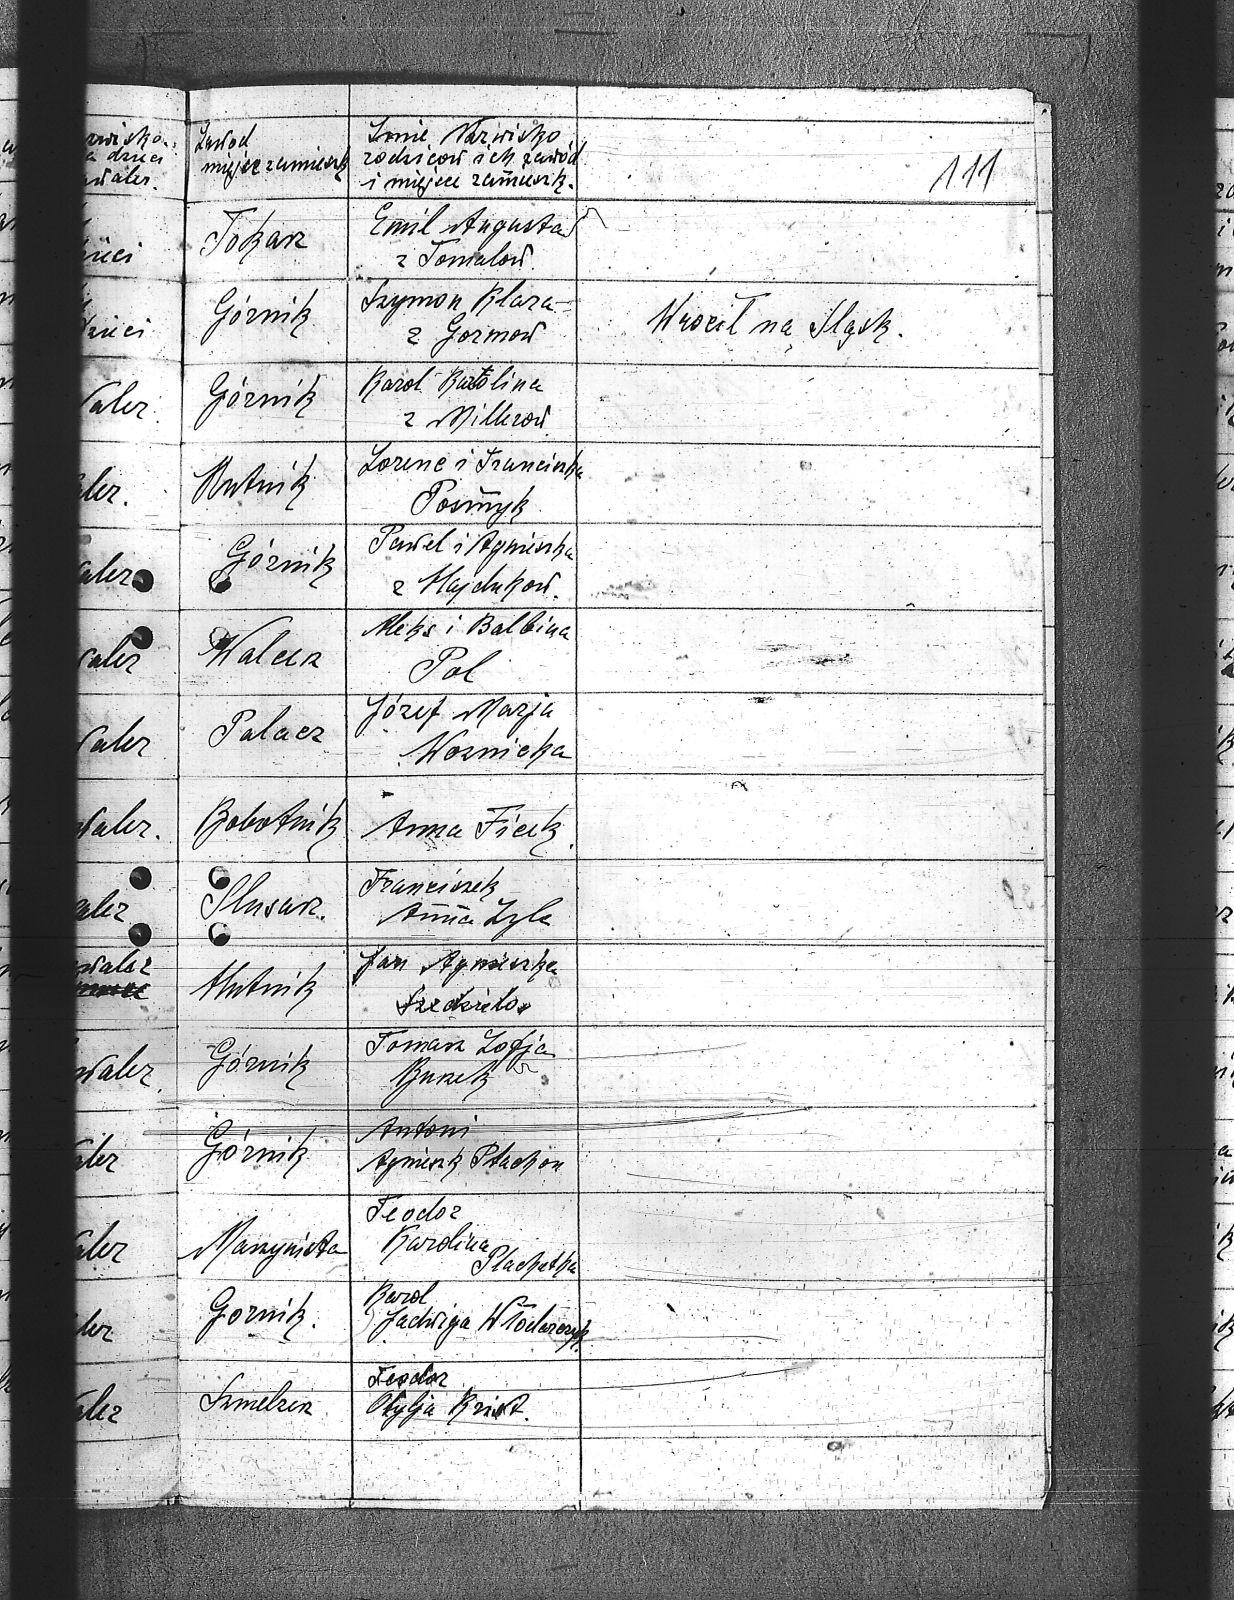 Zawód
miejsce zamieszk
Imie Nazwisko
rodziców ich zawód
i miejsce zamieszk.
111
Tokarz
Emil Augusta
z Tomalow
Górnik
Szymon Klara
z Gormow
Wrocił na Sląsk.
waler.
Górnik
Karol Karolina
z Millerow
aler.
Hutnik
Lorenc i Franciszka
Posmyk
waler
Górnik
Pawel i Agnieszka
z Hajdukow.
waler
Walcer
Aleks i Balbina
Pol
waler
Palacz
Józef Marja
Woznicka
waler.
Robotnik
Anna Ficek
aler
Slusarz.
Franciszek
Anna Zyla
waler
Hutnik
Jan Agnieszka
waler
Górnik
Tomasz Zofja
Buzek
aler
Górnik
Antoni
Agnieszk Plachon
aler
Maszynista
Teodor
Karolina
Plachetka
aler
Gornik.
Karol
Jadwiga Włodarczyk
aler
Szmelcer
Teodor
Otylja Krist.